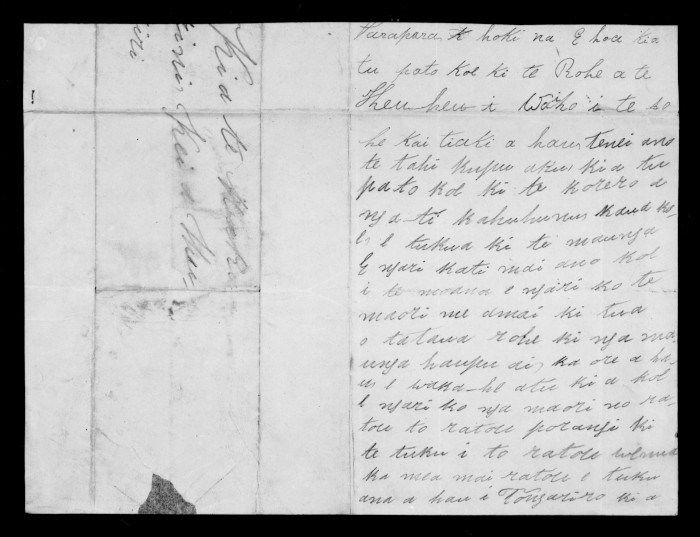 Varapara, E hoki na E hoa kia
tu pato Koe ki te Rohe a te
Heu heu i Waho i te he
he Kai tiaki a hau, tenei ano
te tahi kupu aku, kia tu
pato Koe ki te Korero a
nga ti Kahuhunu, Kaua Ko
E tukua ki te maunga
E ngari Kati mai ano Koe
i te moana E ngari ko te
maori me amai ki tua
o tatawa rohe ki nga ma
unga haupu ai, ka ore a ha
u, E waka-he atu ki a koe
E ngari ko nga maori no ra
tou to ratou porangi ki
te tuku i to ratou
Ka mea mai ratou E tuku
ana a hau i Tongariro ki a
Kia te
Kei a Heu